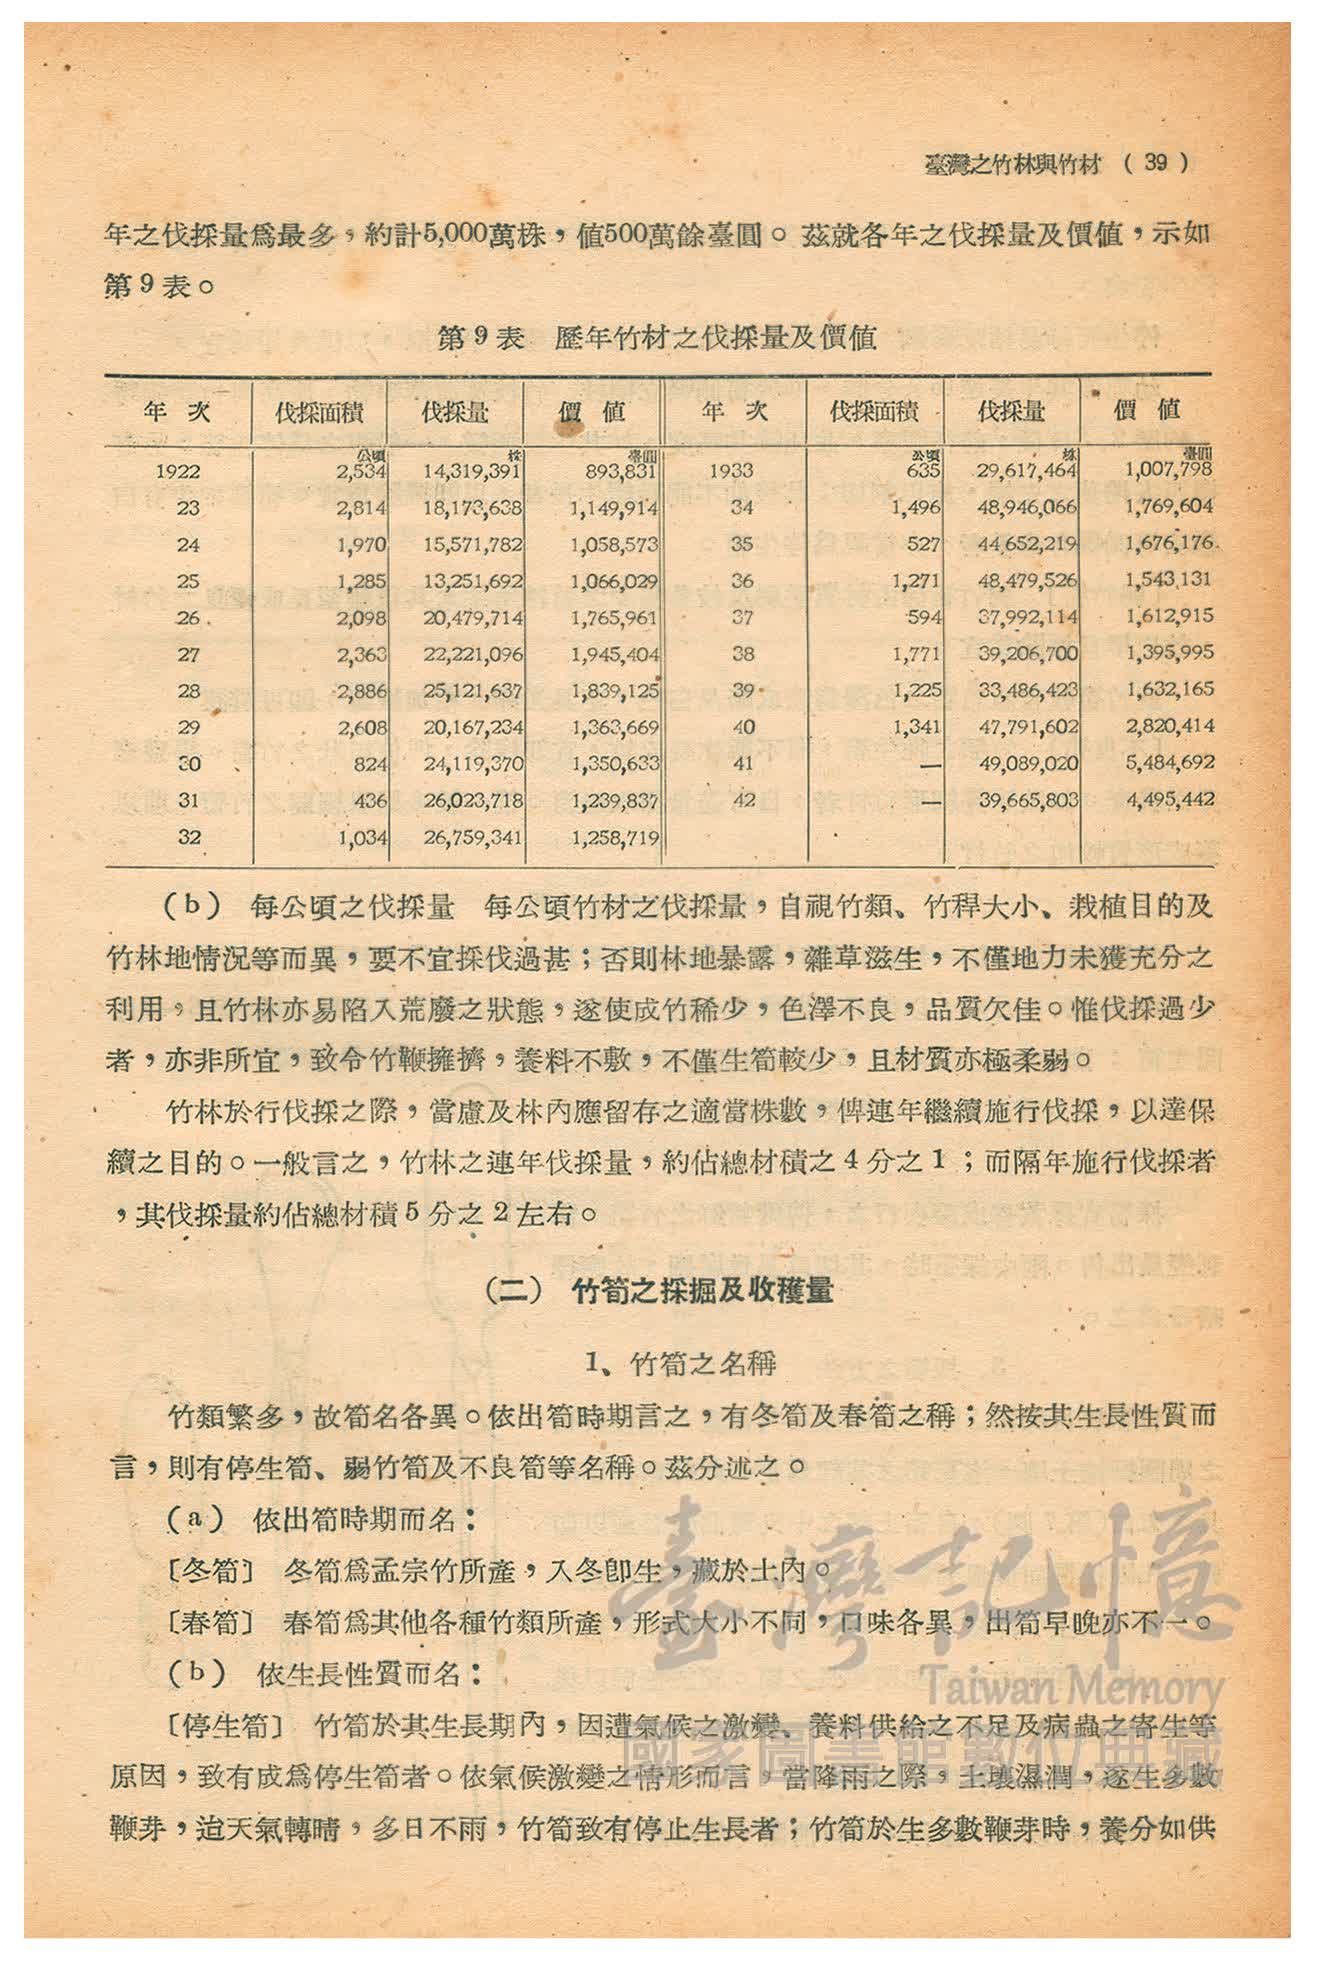 臺灣之竹林與竹材 ( 39 )
年之伐採量爲最多，約計5,000萬株，値500萬餘臺圓。茲就各年之伐採量及價値，示如
第9表。
第9表　歷年竹材之伐採量及價値
年次 伐採面積 伐採量 價値 年次 伐採面積 伐採量 價値
公頃 株 臺圓 公頃 株 臺圓
1922 2,534 14,319,391 893,831 1933 635 29,617,464 1,007,798
23 2,814 18,173,638 1,149,914 34 1,496 48,946,066 1,769,604
24 1,970 15,571,782 1,058,573 35 527 44,652,219 1,676,176
25 1,285 13,251,692 1,066,029 36 1,271 48,479,526 1,543,131
26 2,098 20,479,714 1,765,961 37 594 37,992,114 1,612,915
27 2,363 22,221,096 1,945,404 38 1,771 39,206,700 1,395,995
28 2,886 25,121,637 1,839,125 39 1,225 33,486,423 1,632,165
29 2,608 20,167,234 1,363,669 40 1,341 47,791,602 2,820,414
30 824 24,119,370 1,350,633 41 — 49,089,020 5,484,692
31 436 26,023,718 1,239,837 42 — 39,665,803 4,495,442
32 1,034 26,759,341 1,258,719
(b)　每公頃之伐採量　每公頃竹材之伐採量，自視竹類、竹稈大小、栽植目的及
竹林地情況等而異，要不宜採伐過甚；否則林地暴露，雜草滋生，不僅地力未獲充分之
利用，且竹林亦易陷入荒廢之狀態，遂使成竹稀少，色澤不良，品質欠佳。惟伐採過少
者，亦非所宜，致令竹鞭擁擠，養料不敷，不僅生筍較少，且材質亦極柔弱。
竹林於行伐採之際，當慮及林內應留存之適當株數，俾連年繼續施行伐採，以達保
續之目的。一般言之，竹林之連年伐採量，約佔總材積之4分之1；而隔年施行伐採者
，其伐採量約佔總材積5分之2左右。
(二)　竹筍之採掘及收穫量
1、竹筍之名稱
竹類繁多，故筍名各異。依出筍時期言之，有冬筍及春筍之稱；然按其生長性質而
言，則有停生筍、弱竹筍及不良筍等名稱。茲分述之。
(a)　依出筍時期而名：
〔冬筍〕　冬筍爲孟宗竹所產，入冬卽生，藏於土內。
〔春筍〕　春筍爲其他各種竹類所產，形式大小不同，口味各異，出筍早晚亦不一。
(b)　依生長性質而名：
〔停生筍〕　竹筍於其生長期內，因遭氣候之激變、養料供給之不足及病蟲之寄生等
原因，致有成爲停生筍者。依氣候激變之情形而言，當降雨之際，土壤濕潤，遂生多數
鞭芽，迨天氣轉晴，多日不雨，竹筍致有停止生長者；竹筍於生多數鞭芽時，養分如供
臺灣記憶
Taiwan Memory
國家圖書館數位典藏